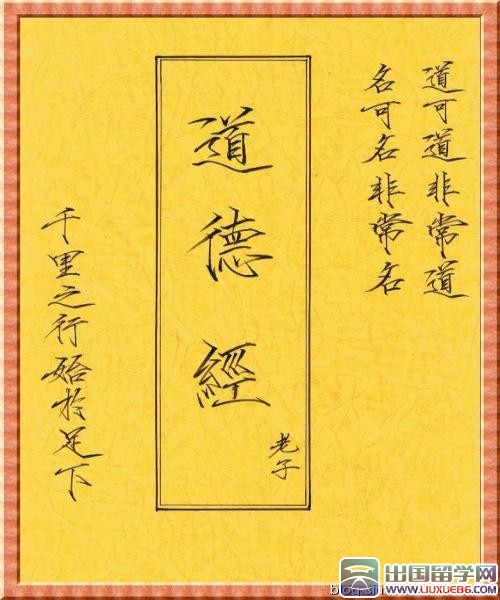 道可道非常道
名可名非常名
道德經
老子
千里之行始於足下
出国留学网
www.liuxue86.com